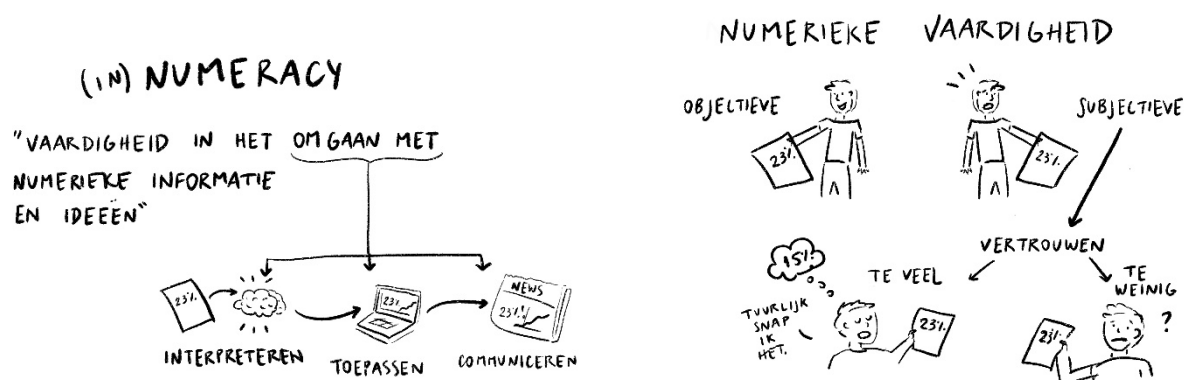 (IN) NUMERACY
"VAARDIGHEID IN HET OMGAAN MET
NUMERIEKE INFORMATIE
EN IDEEËN"
23%
23%
NEWS
23%!
INTERPRETEREN
TOEPASSEN
COMMUNICEREN
NUMERIEKE VAARDIGHEID
OBJECTIEVE
SUBJECTIEVE
23%
23%
VERTROUWEN
TE VEEL
TE
WEINIG
TUURLIJK
SNAP
IK
HET.
23%
23%
?